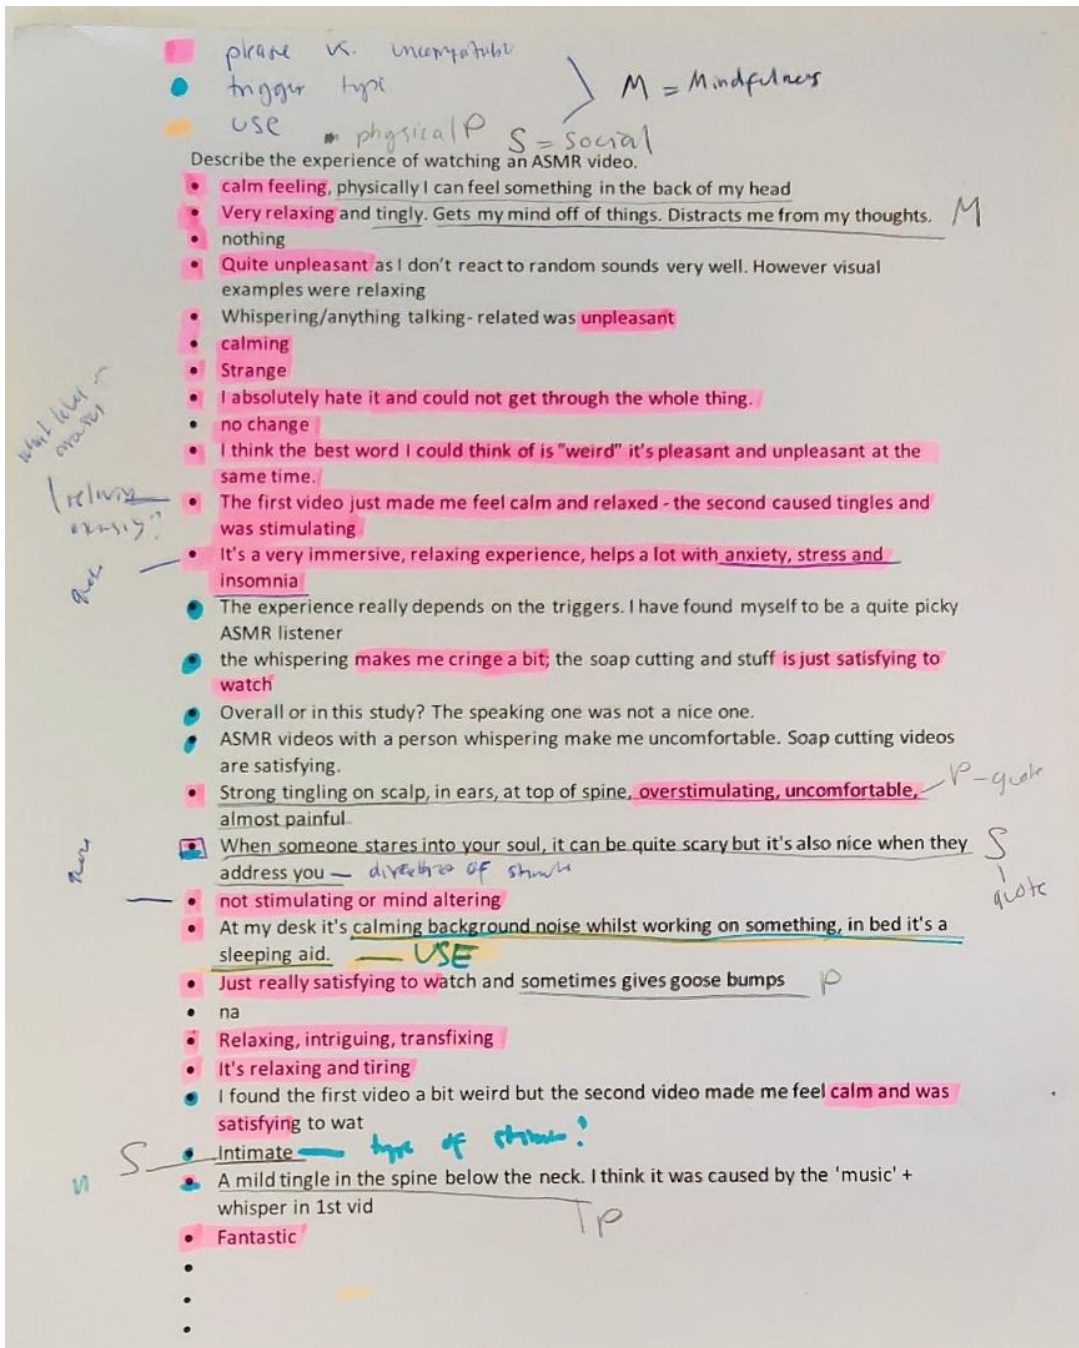 please vs. uncomfortable
trigger type
M = Mindfulness
use
physical P
S = social
Describe the experience of watching an ASMR video.
• calm feeling, physically I can feel something in the back of my head
• Very relaxing and tingly. Gets my mind off of things. Distracts me from my thoughts. M
• nothing
• Quite unpleasant as I don't react to random sounds very well. However visual
examples were relaxing
• Whispering/anything talking- related was unpleasant
• calming
• Strange
• I absolutely hate it and could not get through the whole thing.
• no change
• I think the best word I could think of is "weird" it's pleasant and unpleasant at the
same time.
• The first video just made me feel calm and relaxed - the second caused tingles and
was stimulating
• It's a very immersive, relaxing experience, helps a lot with anxiety, stress and
insomnia
• The experience really depends on the triggers. I have found myself to be a quite picky
ASMR listener
• the whispering makes me cringe a bit; the soap cutting and stuff is just satisfying to
watch
• Overall or in this study? The speaking one was not a nice one.
• ASMR videos with a person whispering make me uncomfortable. Soap cutting videos
are satisfying.
• Strong tingling on scalp, in ears, at top of spine, overstimulating, uncomfortable, P-quote
almost painful
• When someone stares into your soul, it can be quite scary but it's also nice when they S
address you — of
quote
• not stimulating or mind altering
• At my desk it's calming background noise whilst working on something, in bed it's a
sleeping aid. — USE
• Just really satisfying to watch and sometimes gives goose bumps P
• na
• Relaxing, intriguing, transfixing
• It's relaxing and tiring
• I found the first video a bit weird but the second video made me feel calm and was
satisfying to wat
S • Intimate — type of
• A mild tingle in the spine below the neck. I think it was caused by the 'music' +
whisper in 1st vid
P
• Fantastic
•
•
•